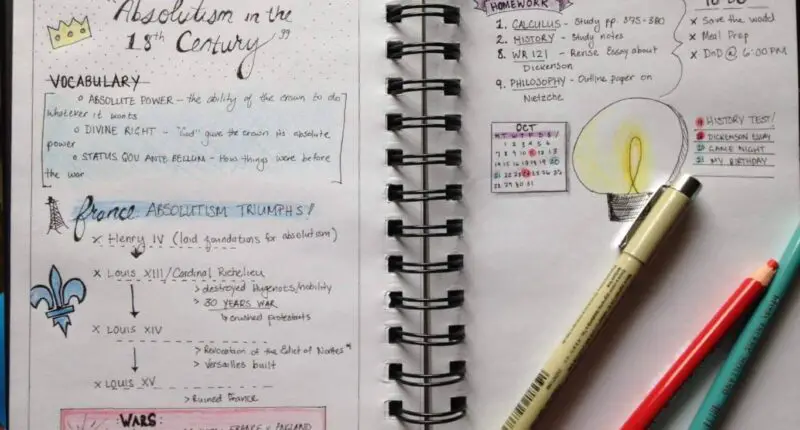 Absolutism in the
18th Century"
VOCABULARY
○ ABSOLUTE POWER – the ability of the crown to do
whatever it wants
○ DIVINE RIGHT – "God" gave the crown its absolute
power
○ STATUS QOU ANTE BELLUM – How things were before
the war
france: ABSOLUTISM TRIUMPHS!
x Henry IV (laid foundations for absolutism)
x Louis XIII/Cardinal Richelieu
> destroyed Hugenots/nobility
> 30 YEARS WAR
↳ crushed protestants
x LOUIS XIV
> Revocation of the Edict of Nantes
> Versailles built
x LOUIS XV
> Ruined France
:WARS:
FRANCE ENGLAND
HOMEWORK
1. CALCULUS – Study pp. 375-380
2. HISTORY – Study notes
8. WR 121 – Revise Essay about
Dickenson
9. PHILOSOPHY – Outline paper on
Nietzche
TO DO
x Save the world
x Meal Prep
x DnD @ 6:00 PM
OCT
M T W T F S S
1 2 3 4 5 6
7 8 9 10 12 13
14 15 16 17 18 19 20
21 22 23 25 26 27
28 29 30 31
HISTORY TEST!
DICKENSON ESSAY
GAME NIGHT
MY BIRTHDAY